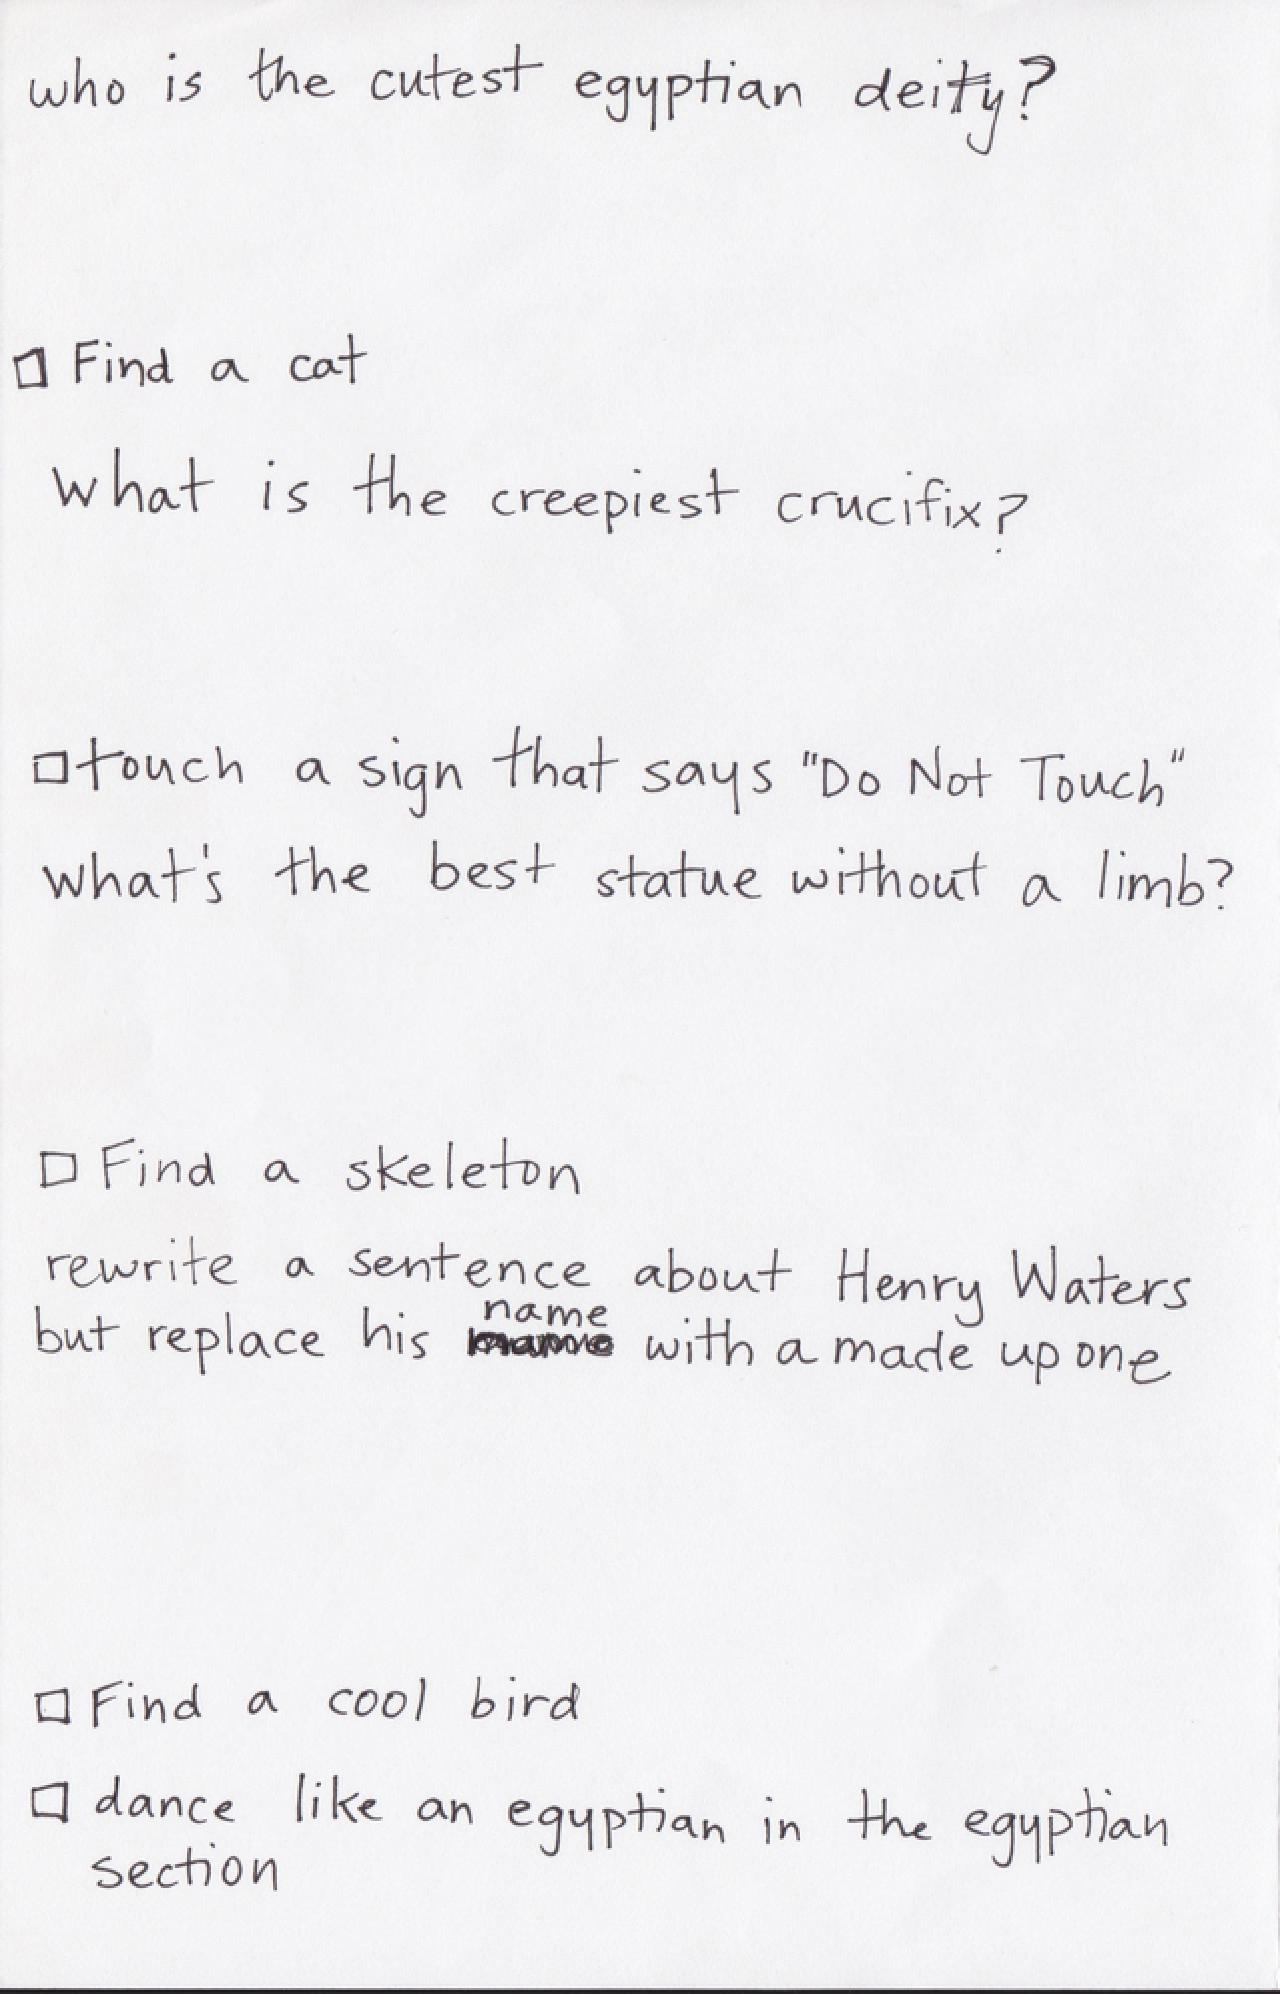 who is the cutest egyptian deity?
□ Find a cat
what is the creepiest crucifix?
□ touch a sign that says "Do Not Touch"
what's the best statue without a limb?
□ Find a skeleton
rewrite a sentence about Henry Waters
name
but replace his with a made up one
□ Find a cool bird
□ dance like an egyptian in the egyptian
section